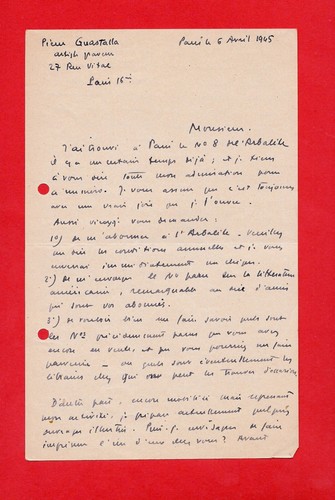 Pierre Guastalla
artiste graveur
27 Rue Vital
Paris 16e
Paris le 6 Avril 1945
Monsieur.
J'ai trouvé à Paris le No 8 de l'Arbalète
il y a un certain temps déjà ; et je tiens
à vous dire toute mon admiration pour
ce numéro. Je vous assure que c'est toujours
avec une vraie joie que je l'ouvre.
Aussi viens-je vous demander :
1o) de m'abonner à l'Arbalète. Veuillez
me dire les conditions annuelles et je vous
enverrai immédiatement un chèque.
2o) de m'envoyer le No paru sur la littérature
américaine, remarquable au dire d'amis
qui sont vos abonnés.
3o) je voudrais bien me faire savoir quels sont
les Nos précédemment parus que vous avez
encore en vente, et que vous pourriez me faire
parvenir — ou quels sont éventuellement les
libraires chez qui on peut les trouver d'occasion.
D'autre part, encore mobilisé mais reprenant
mon activité, je prépare actuellement quelques
ouvrages illustrés. Puis-je envisager de faire
imprimer l'un d'eux chez vous ? Avant